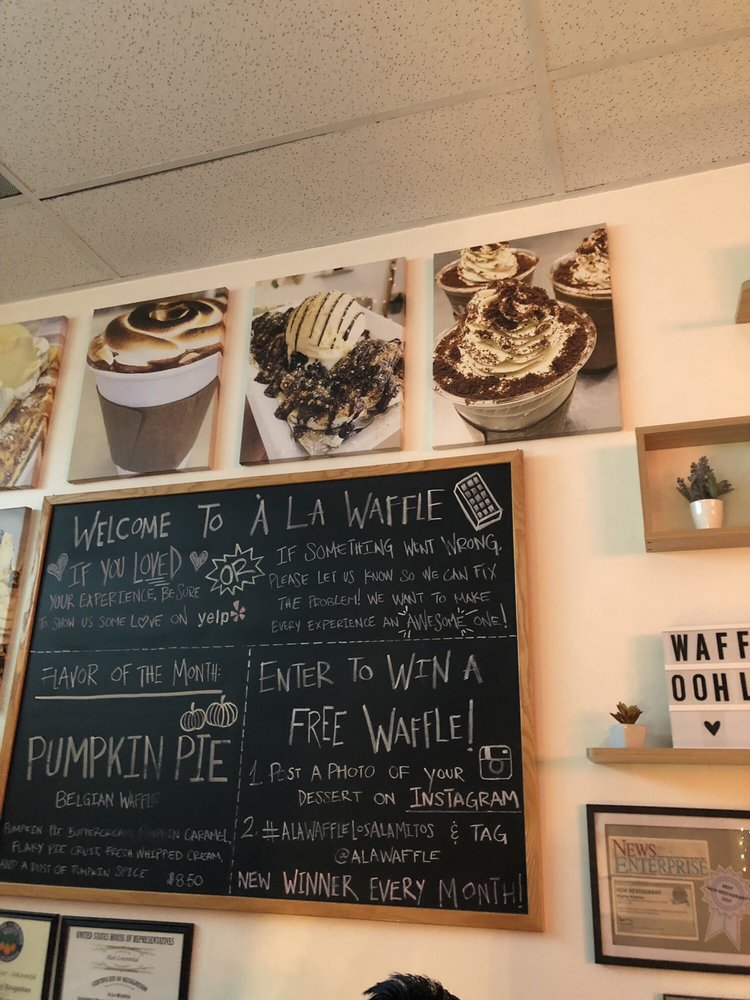 WELCOME TO À LA WAFFLE
IF YOU LOVED
YOUR EXPERIENCE, BE SURE
TO SHOW US SOME LOVE ON yelp
OR
IF SOMETHING WENT WRONG,
PLEASE LET US KNOW SO WE CAN FIX
THE PROBLEM! WE WANT TO MAKE
EVERY EXPERIENCE AN AWESOME ONE!
FLAVOR OF THE MONTH:
PUMPKIN PIE
BELGIAN WAFFLE
PUMPKIN PIE BUTTERCREAM, PUMPKIN CARAMEL,
FLAKY PIE CRUST, FRESH WHIPPED CREAM,
AND A DUST OF PUMPKIN SPICE $8.50
ENTER TO WIN A
FREE WAFFLE!
1. POST A PHOTO OF YOUR
DESSERT ON INSTAGRAM
2. #ALAWAFFLELOSALAMITOS & TAG
@ALAWAFFLE
NEW WINNER EVERY MONTH!
WAFF
OOHL
NEWS
ENTERPRISE
NEW RESTAURANT
BEST
NEW RESTAURANT
2017
UNITED STATES HOUSE OF REPRESENTATIVES
CERTIFICATE OF RECOGNITION